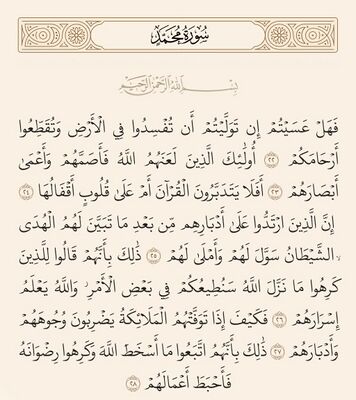 سُورَةُ مُحَمَّدٍ
بِسْمِ اللَّهِ الرَّحْمَٰنِ الرَّحِيمِ
فَهَلْ عَسَيْتُمْ إِن تَوَلَّيْتُمْ أَن تُفْسِدُوا فِي الْأَرْضِ وَتُقَطِّعُوا
أَرْحَامَكُمْ ﴿٢٢﴾ أُولَٰئِكَ الَّذِينَ لَعَنَهُمُ اللَّهُ فَأَصَمَّهُمْ وَأَعْمَىٰ
أَبْصَارَهُمْ ﴿٢٣﴾ أَفَلَا يَتَدَبَّرُونَ الْقُرْآنَ أَمْ عَلَىٰ قُلُوبٍ أَقْفَالُهَا ﴿٢٤﴾
إِنَّ الَّذِينَ ارْتَدُّوا عَلَىٰ أَدْبَارِهِم مِّن بَعْدِ مَا تَبَيَّنَ لَهُمُ الْهُدَى
الشَّيْطَانُ سَوَّلَ لَهُمْ وَأَمْلَىٰ لَهُمْ ﴿٢٥﴾ ذَٰلِكَ بِأَنَّهُمْ قَالُوا لِلَّذِينَ
كَرِهُوا مَا نَزَّلَ اللَّهُ سَنُطِيعُكُمْ فِي بَعْضِ الْأَمْرِ وَاللَّهُ يَعْلَمُ
إِسْرَارَهُمْ ﴿٢٦﴾ فَكَيْفَ إِذَا تَوَفَّتْهُمُ الْمَلَائِكَةُ يَضْرِبُونَ وُجُوهَهُمْ
وَأَدْبَارَهُمْ ﴿٢٧﴾ ذَٰلِكَ بِأَنَّهُمُ اتَّبَعُوا مَا أَسْخَطَ اللَّهَ وَكَرِهُوا رِضْوَانَهُ
فَأَحْبَطَ أَعْمَالَهُمْ ﴿٢٨﴾